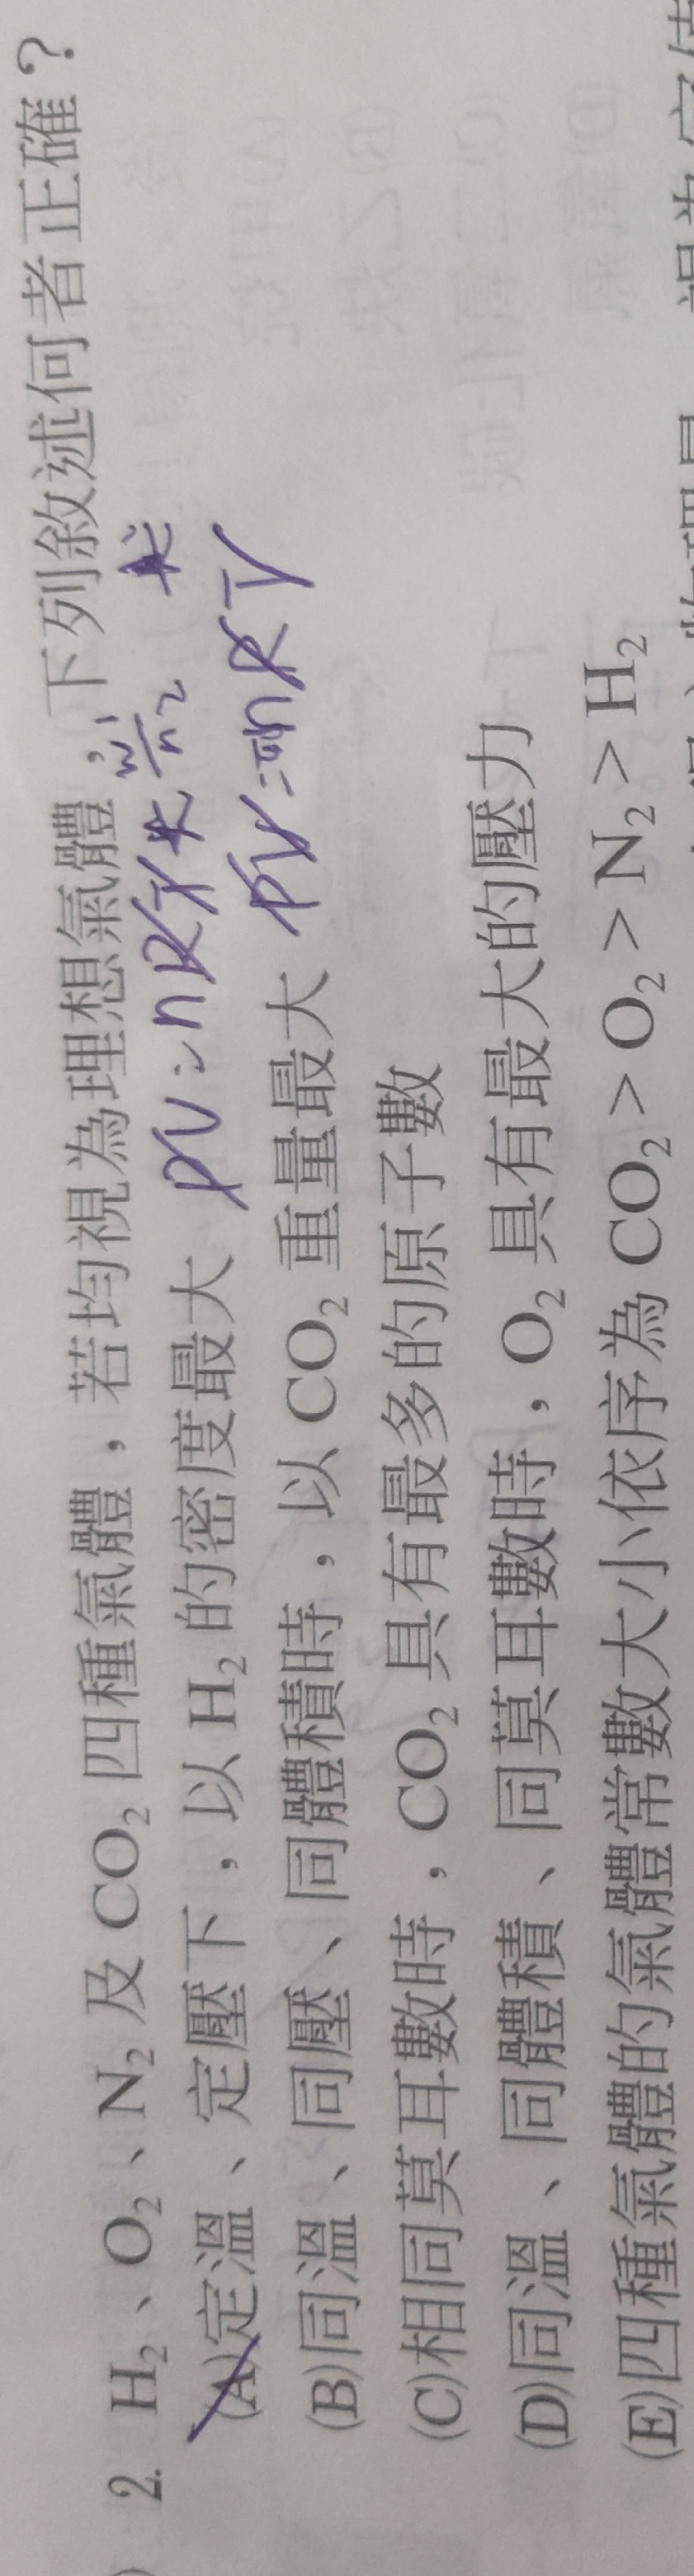 ) 2. H₂、O₂、N₂ 及 CO₂ 四種氣體，若均視為理想氣體，下列敘述何者正確？
(A)定溫、定壓下，以 H₂ 的密度最大
PV=nRT
(B)同溫、同壓、同體積時，以 CO₂ 重量最大
PV=nRT
(C)相同莫耳數時，CO₂ 具有最多的原子數
(D)同溫、同體積、同莫耳數時，O₂ 具有最大的壓力
(E)四種氣體的氣體常數大小依序為 CO₂ > O₂ > N₂ > H₂